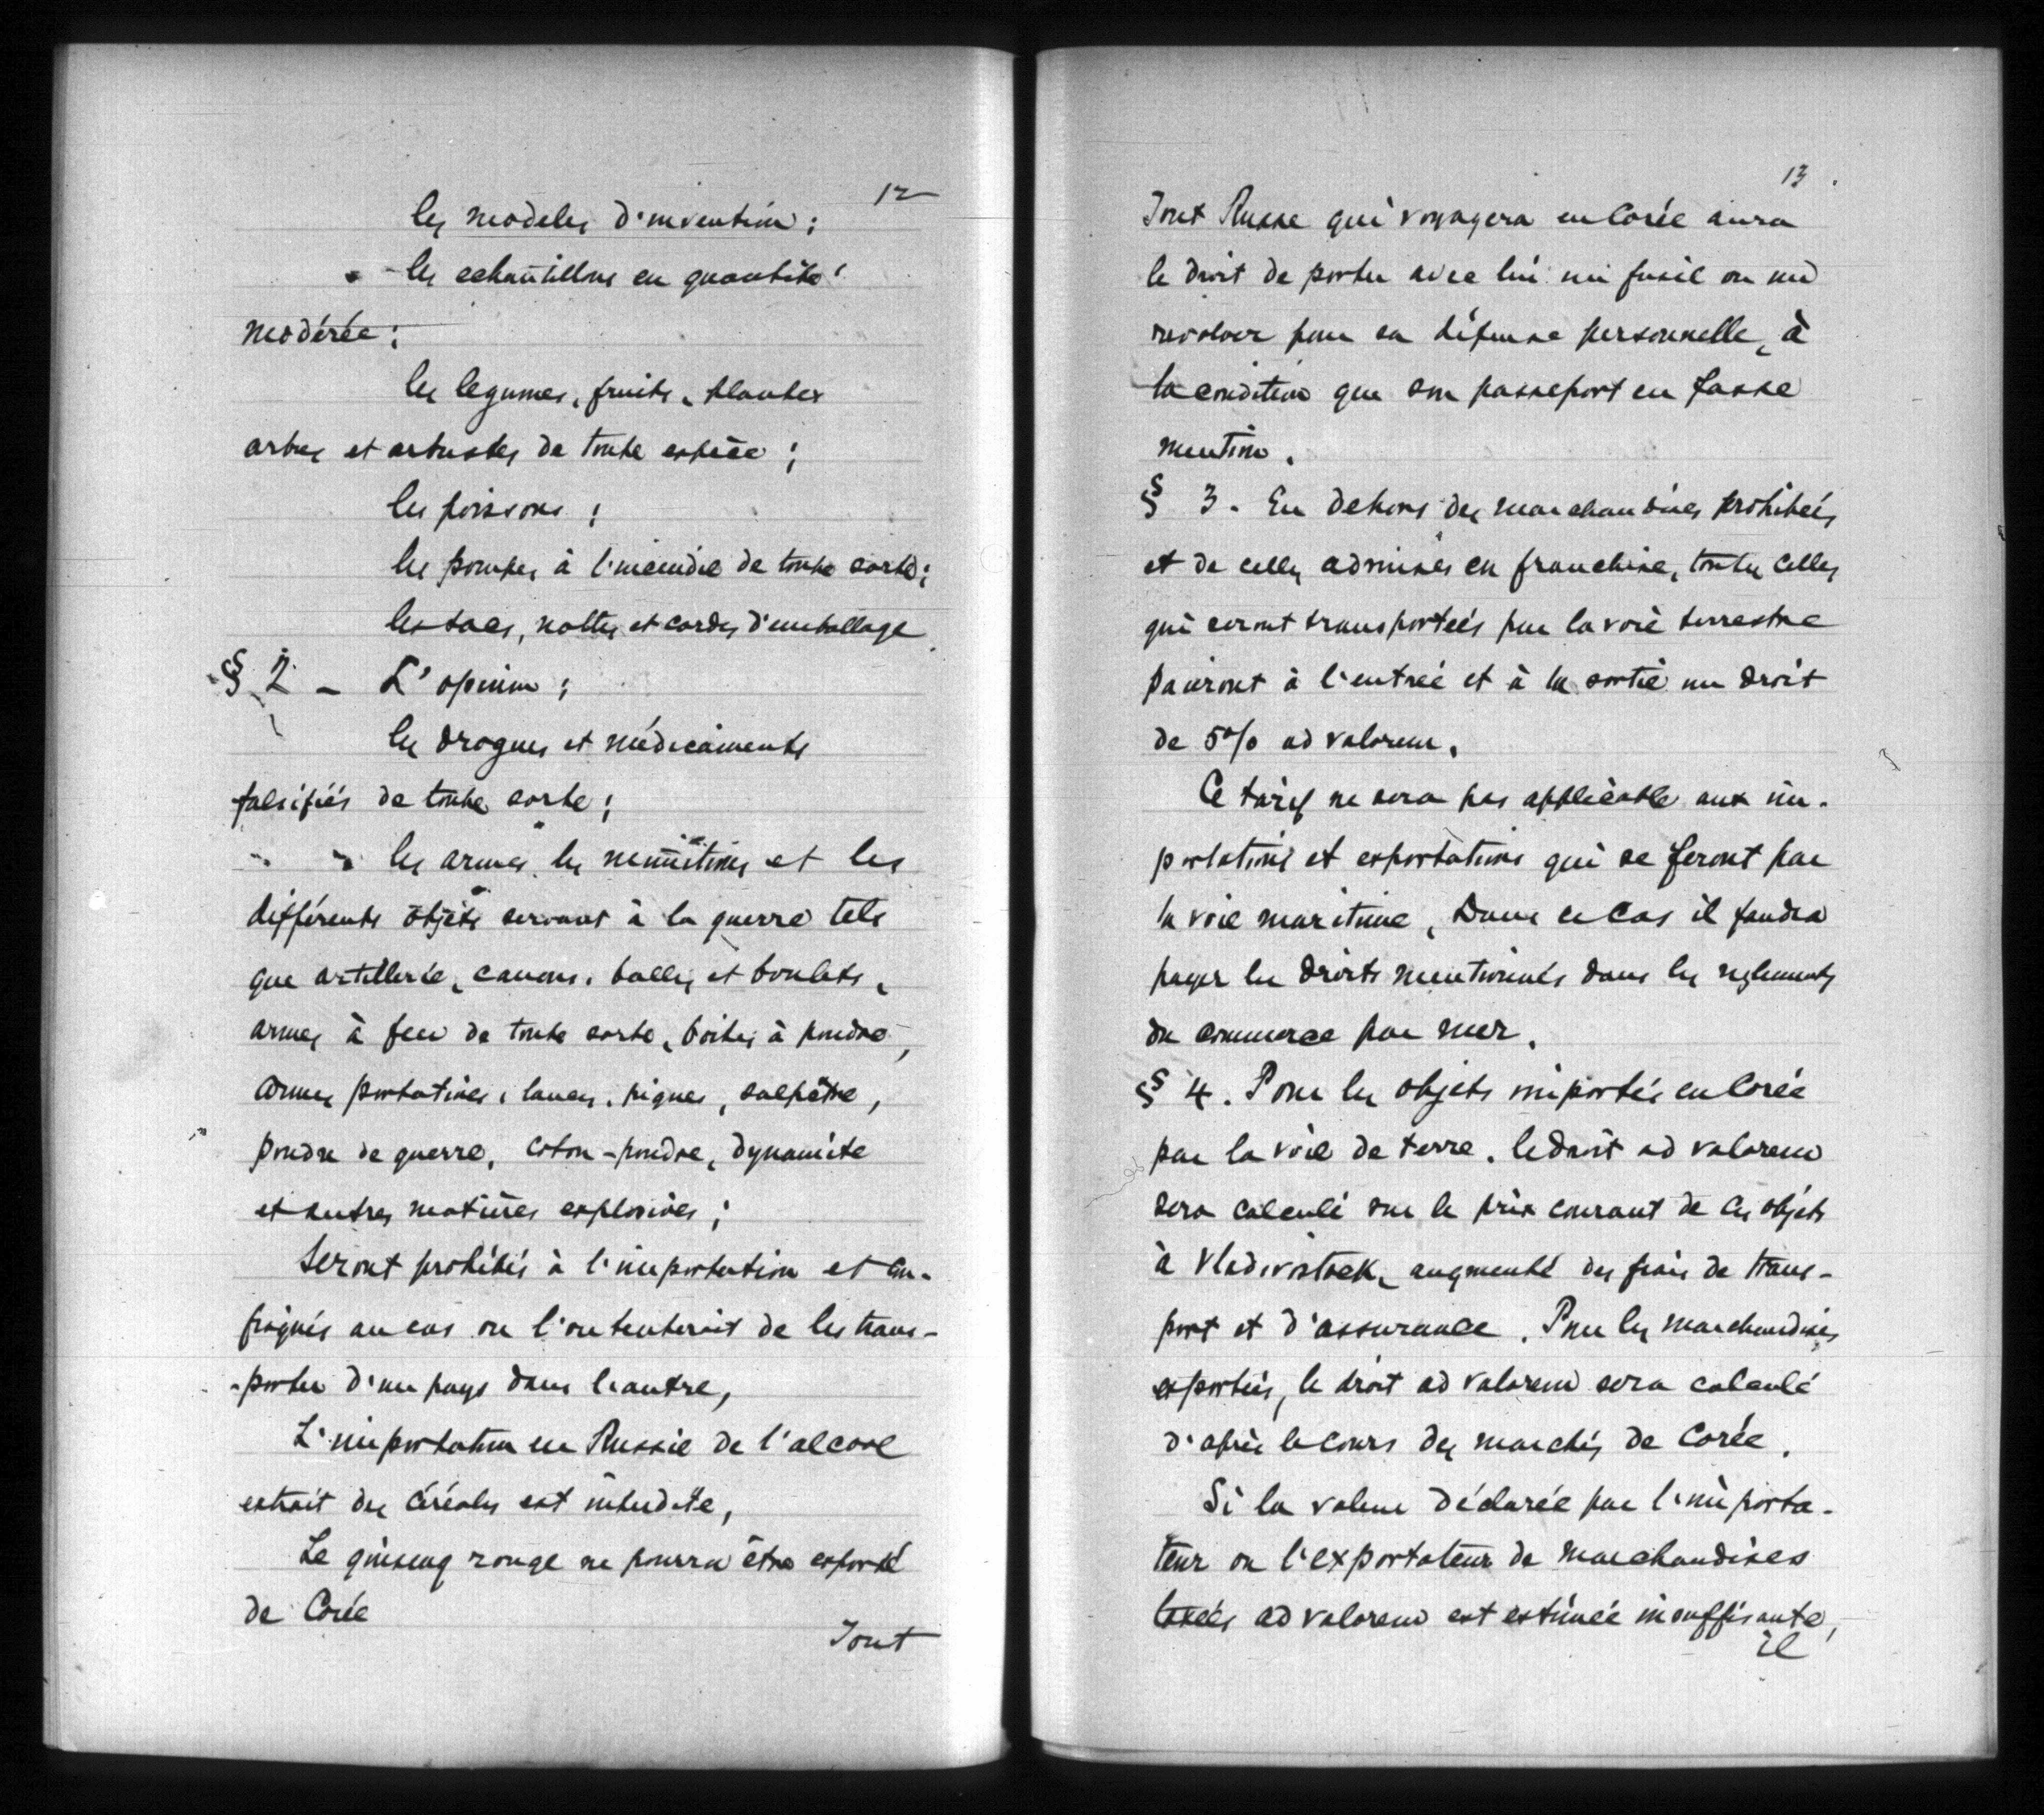 12
les modeles d'invention ;
- les echantillons en quantité
modérée ;
les legumes, fruits, plantes
arbres et arbustes de toute espèce ;
les poissons ;
les pompes à l'incendie de toute sorte ;
les sacs, nattes et cordes d'emballage
§ 2 - L'opium ;
les drogues et médicaments
falsifiés de toute sorte ;
les armes, les munitions et les
différents objets servant à la guerre tels
que artillerie, canons, balles et boulets,
armes à feu de toute sorte, boites à poudre,
armes portatives, lances, piques, salpêtre,
poudre de guerre, coton-poudre, dynamite
et autres matières explosives ;
Seront prohibés à l'importation et con-
fisqués au cas ou l'on tenterait de les trans-
-porter d'un pays dans l'autre,
L'importation en Russie de l'alcool
extrait des céréales est interdite,
Le ginseng rouge ne pourra être exporté
de Corée
Tout
13
Tout Russe qui voyagera en Corée aura
le droit de porter avec lui un fusil ou un
revolver pour sa défense personnelle, à
la condition que son passeport en fasse
mention.
§ 3. En dehors des marchandises prohibées
et de celles admises en franchise, toutes celles
qui seront transportées par la voie terrestre
paieront à l'entrée et à la sortie un droit
de 5% ad valorem.
Ce tarif ne sera pas applicable aux im-
portations et exportations qui se feront par
la voie maritime, Dans ce cas il faudra
payer les droits mentionnés dans les reglements
du commerce par mer.
§ 4. Pour les objets importés en Corée
par la voie de terre, le droit ad valorem
sera calculé sur le prix courant de ces objets
à Vladivostock, augmenté des frais de trans-
port et d'assurance. Pour les marchandises
exportées, le droit ad valorem sera calculé
d'après le cours des marchés de Corée.
Si la valeur déclarée par l'importa-
teur ou l'exportateur de marchandises
taxées ad valorem est estimée insuffisante,
il